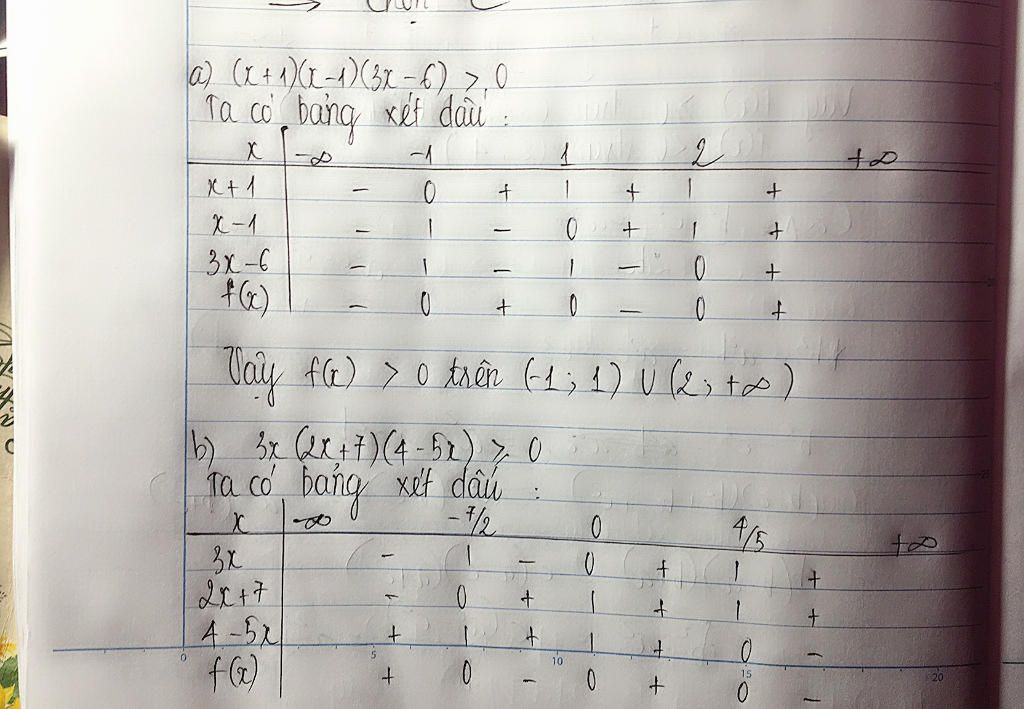 → Chọn C
a) (x+1)(x-1)(3x-6) ≥ 0
Ta có bảng xét dấu :
x -∞ -1 1 2 +∞
x+1 - 0 + | + | +
x-1 - | - 0 + | +
3x-6 - | - | - 0 +
f(x) - 0 + 0 - 0 +
Vậy f(x) > 0 trên (-1 ; 1) ∪ (2 ; +∞)
b) 3x (2x+7)(4-5x) ≥ 0
Ta có bảng xét dấu :
x -∞ -7/2 0 4/5 +∞
3x - | - 0 + | +
2x+7 - 0 + | + | +
4-5x + | + | + 0 -
0 5 10 15 20
f(x) + 0 - 0 + 0 -